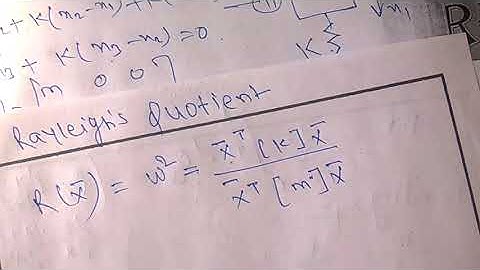 + K(m₂-m₁)+K(
K
m₁
₃ + K(m₃-m₂)=0
R
[m 0 0]
Rayleigh's Quotient
R(x̄) = ω² = x̄ᵀ [K] x̄ / x̄ᵀ [m] x̄